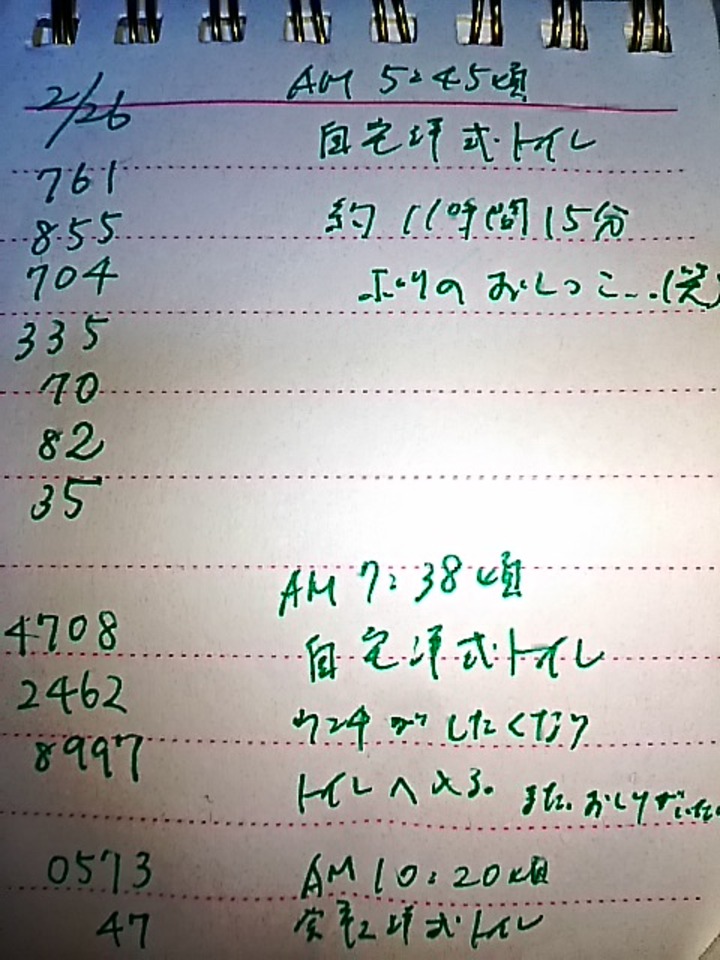 2/26 AM 5:45頃
761 自宅洋式トイレ
855 約11時間15分
704 ぶりのおしっこ...(笑)
335
70
82
35
AM 7:38頃
4708 自宅洋式トイレ
2462 ウンチがしたくなり
8997 トイレへ入る。また、おしりがいたい
0573 AM 10:20頃
47 洋式トイレ